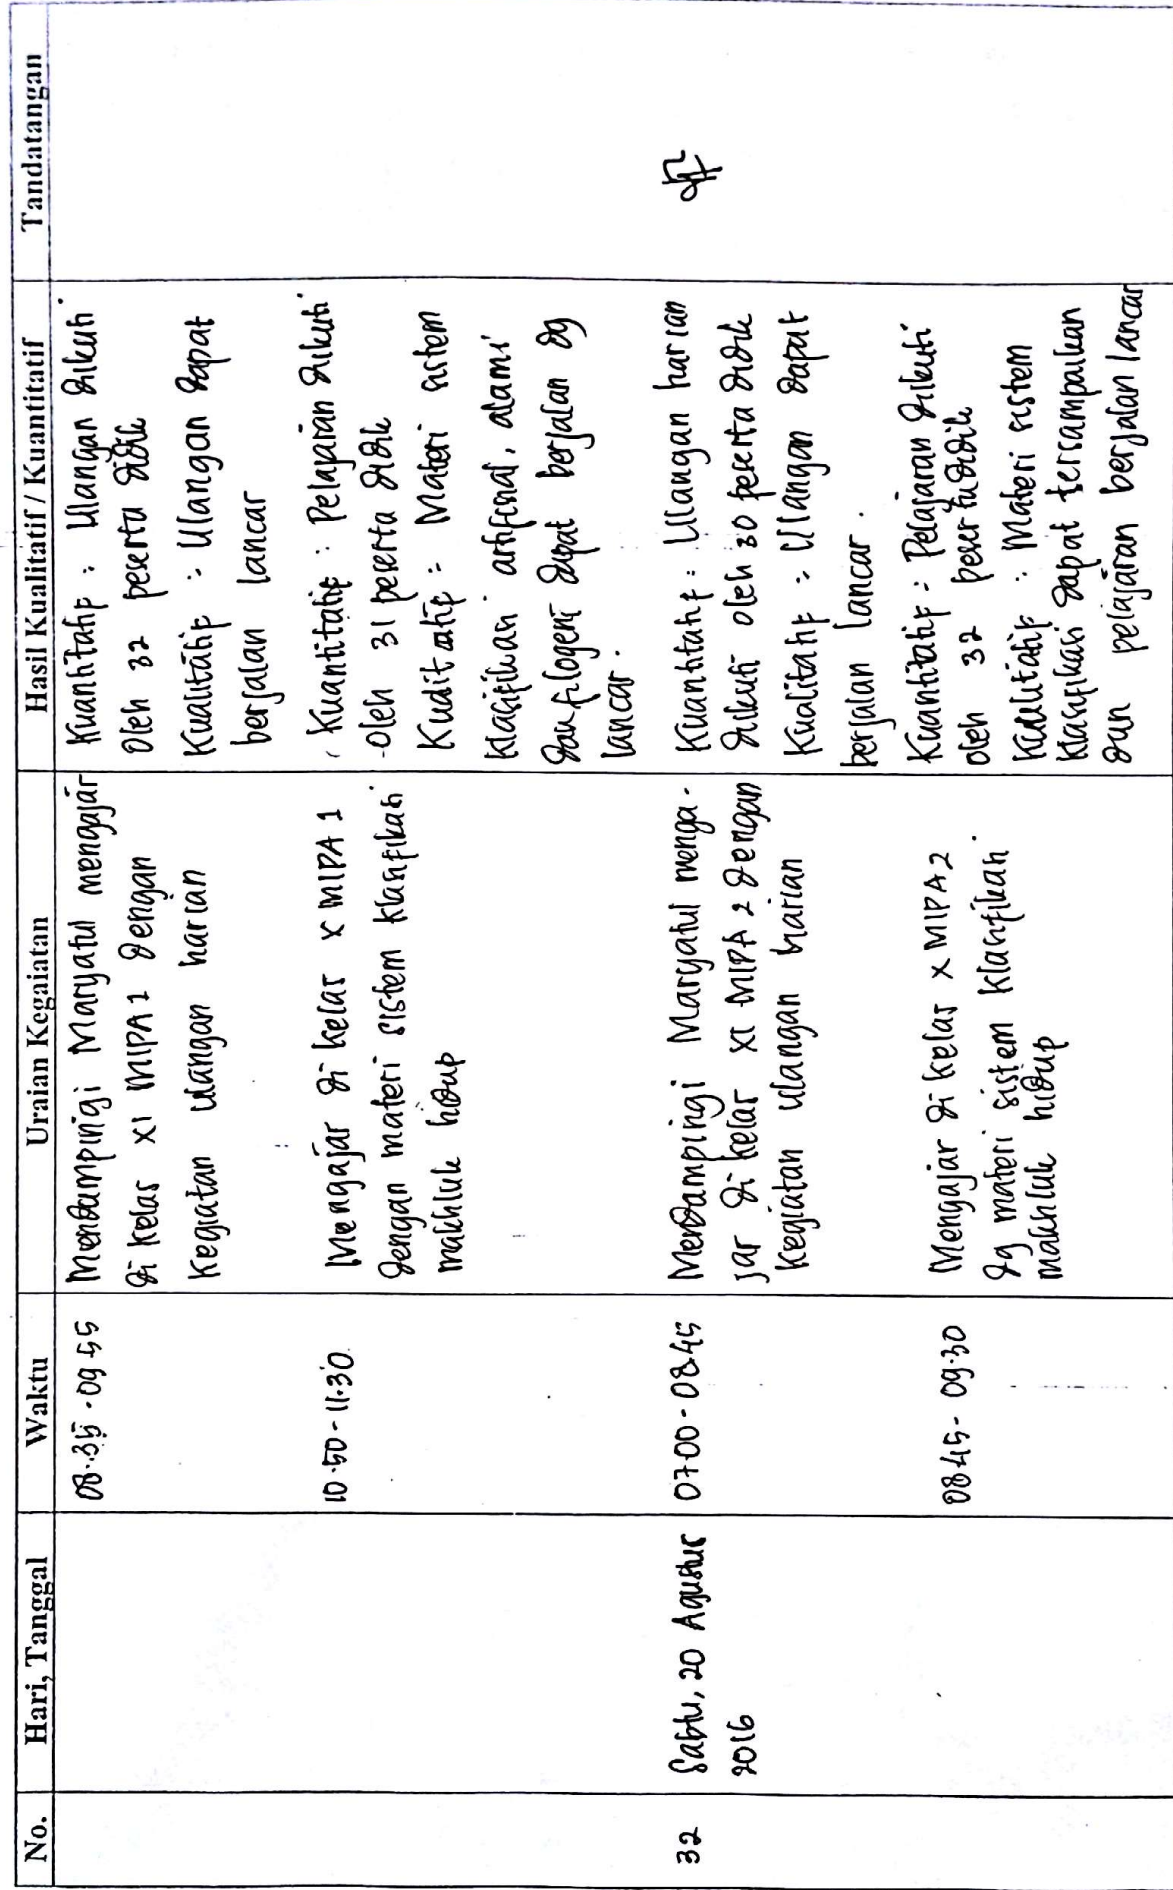 No. Hari, Tanggal Waktu Uraian Kegaiatan Hasil Kualitatif / Kuantitatif Tandatangan
08.35 - 09.55
Mendampingi Maryatul mengajar
di kelas XI MIPA 2 dengan
kegiatan ulangan harian
Kuantitatif : Ulangan diikuti
oleh 32 peserta didik
Kualitatif : Ulangan dapat
berjalan lancar
10.50 - 11.30
Mengajar di kelas X MIPA 1
dengan materi sistem klasifikasi
makhluk hidup
Kuantitatif : Pelajaran diikuti
oleh 31 peserta didik
Kualitatif : Materi sistem
klasifikasi artifisial, alami
dan filogeni dapat berjalan dg
lancar.
32
Sabtu, 20 Agustus
2016
07.00 - 08.45
Mendampingi Maryatul menga-
jar di kelas XI MIPA 2 dengan
kegiatan ulangan harian
Kuantitatif : Ulangan harian
diikuti oleh 30 peserta didik
Kualitatif : Ulangan dapat
berjalan lancar.
08.45 - 09.30
Mengajar di kelas X MIPA 2
dg materi sistem klasifikasi
makhluk hidup
Kuantitatif : Pelajaran diikuti
oleh 32 peserta didik
Kualitatif : Materi sistem
klasifikasi dapat tersampaikan
dan pelajaran berjalan lancar